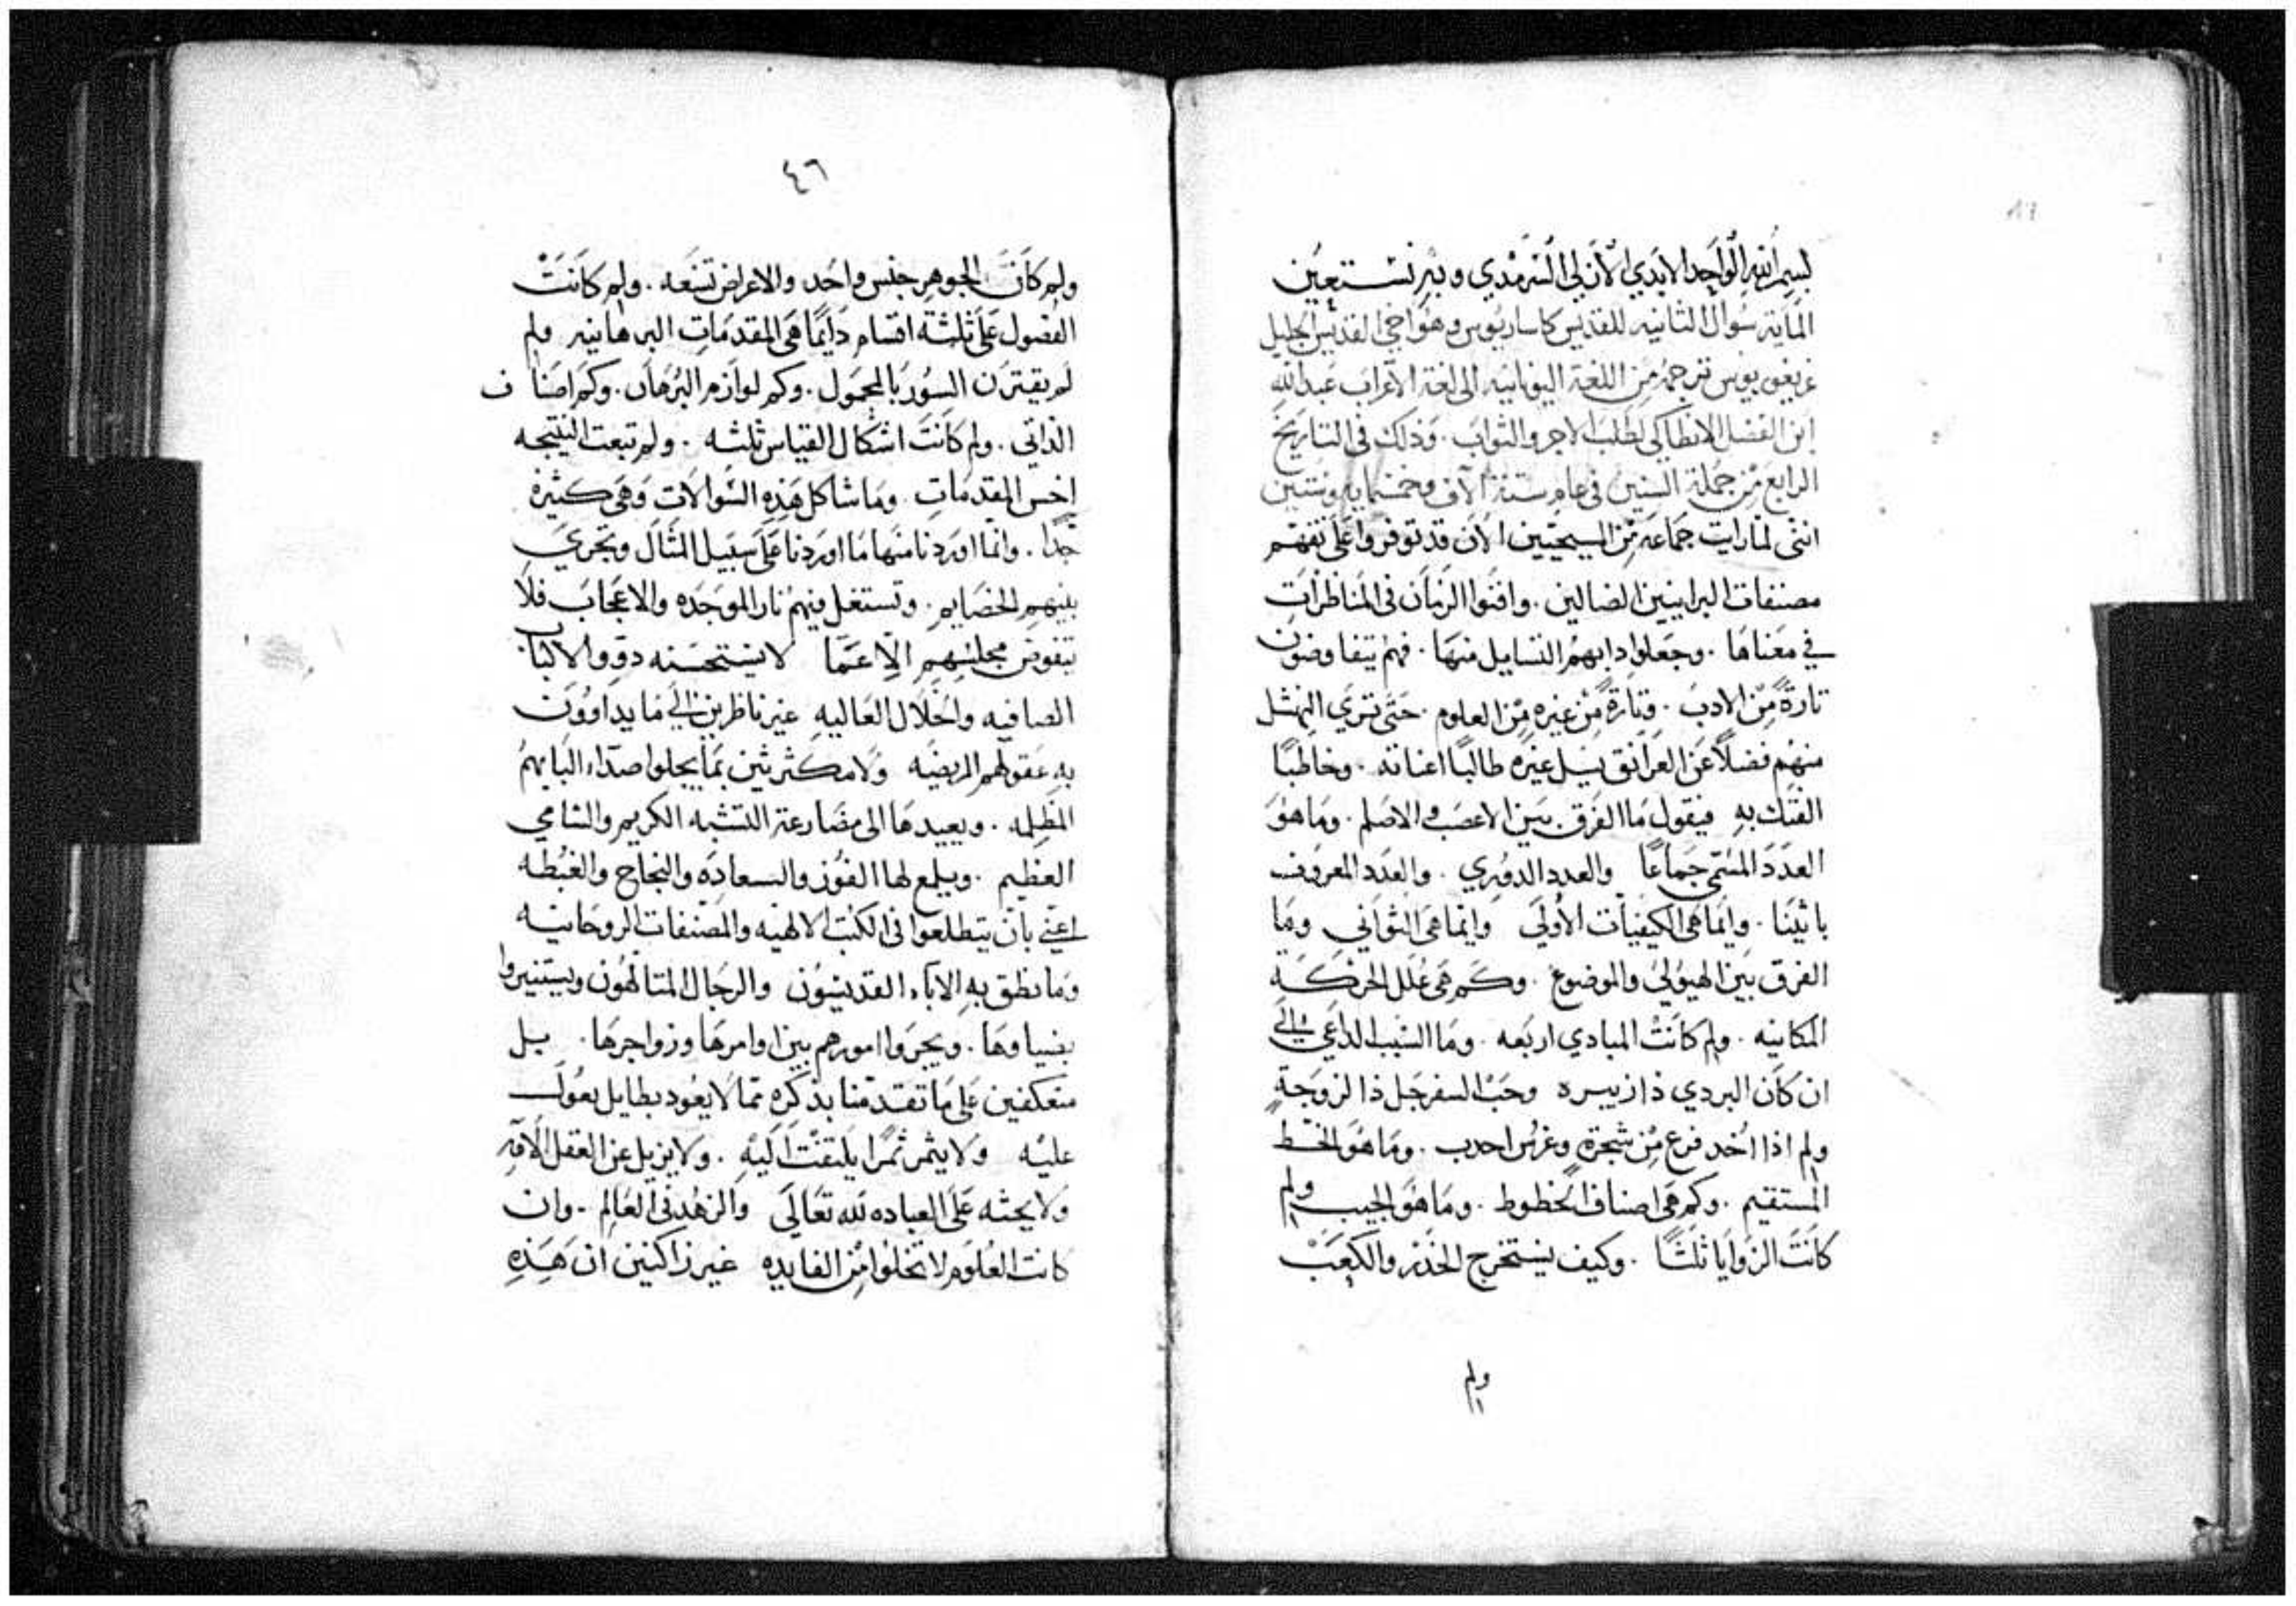 بسم الله الواحد الابدي الازلي السرمدي وبه نستعين
الماية سوال الثانيه للقديس كاساريوس وهو اخي القديس الجليل
غريغوريوس ترجمه من اللغة اليونانيه الى لغة الاعراب عبدالله
ابن الفضل الانطاكي لطلب الاجر والثواب . وذلك في التاريخ
الرابع من جملة السنين في عام ستة آلاف وخمسمايه وستين
انني لما رايت جماعه من المسيحيين الآن قد توفروا على تفهم
مصنفات البرانيين الضالين . وافنوا الزمان في المناظرات
في معناها . وجعلوا دابهم التسايل منها . فهم يتفاوضون
تارةً من الادب . وتارةً من غيره من العلوم . حتى تري النهشل
منهم فضلاً عن الغرانق يسل غيره طالبًا اعناته . وخاطبًا
الفتك به فيقول ما الفرق بين الاعصب والاصلم . وما هو
العدد المسمى جماعًا والعدد الدوري . والعدد المعروف
باثينا . وانما هي الكيفيات الأولي وانما هي الثواني وما
الفرق بين الهيولي والموضوع . وكم هي علل الحركة
المكانيه . ولم كانت المبادي اربعه . وما السبب الداعي الي
ان كان البردي ذا زبيره وحب السفرجل ذا لزوجة
ولم اذا اخد فرع من شجرةٍ وغرس احدب . وما هو الخط
المستقيم . وكم هي اصناف الخطوط . وما هو الجيب ولم
كانت الزوايا ثلثًا . وكيف يستخرج الجذر والكعب
ولم
٤٦
ولم كان الجوهر جنس واحد والاعراض تسعه . ولم كانت
الفصول على ثلثة اقسام دايمًا هي المقدمات البرهانيه ولم
لم يقترن السور بالمحمول . وكم لوازم البرهان . وكم اصناف
الذاتي . ولم كانت اشكال القياس ثلثه . ولم تبعت النتيجه
اخس المقدمات . وما شاكل هذه السوالات وهي كثيرة
جدًا . وانما اوردنا منها ما اوردنا على سبيل المثال وتجري
بينهم الخصايم . وتستعل فيهم نار الموجده والاعجاب فلا
يتفوض مجلسهم الا عما لا يستحسنه دوو الالباب
الصافيه والخلال العاليه غير ناظرين الي ما يداوون
به عقولهم المريضه ولا مكثرثين بما يجلوا صدآء البابهم
المظلمه . ويعيدها الى مضارعة التشبه الكريم والسامي
العظيم . ويلمع لها الفوز والسعاده والنجاح والغبطه
اعني بان يتطلعوا في الكتب الالهيه والمصنفات الروحانيه
وما نطق به الآباء القديسون والرجال المتالهون ويستنيروا
بضياوها . ويجروا امورهم بين اوامرها وزواجرها . بل
منعكفين على ما تقدمنا بذكره مما لا يعود بطايل يعول
عليه ولا يثمر ثمرًا يلتفت اليه . ولا يزيل عن العقل الافه
ولا يحثه على العباده لله تعالي والزهد في العالم . وان
كانت العلوم لا تخلوا من الفايده غير زاكنين ان هذه